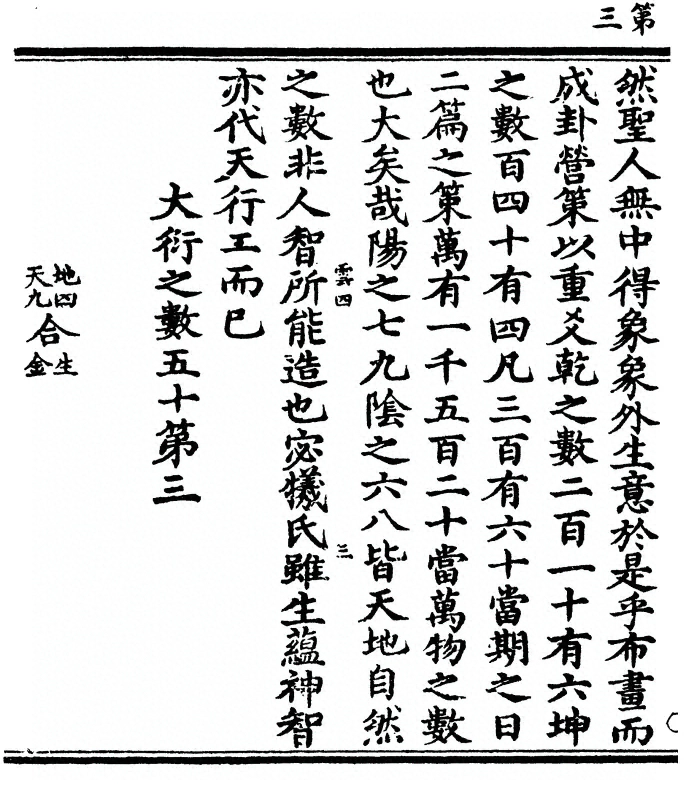 第三
然聖人無中得象象外生意於是乎布畫而
成卦營策以重爻乾之數二百一十有六坤
之數百四十有四凡三百有六十當期之日
二篇之策萬有一千五百二十當萬物之數
也大矣哉陽之七九陰之六八皆天地自然
雲四
三
之數非人智所能造也宓犧氏雖生蘊神智
亦代天行工而已
大衍之數五十第三
地四生
合
天九金